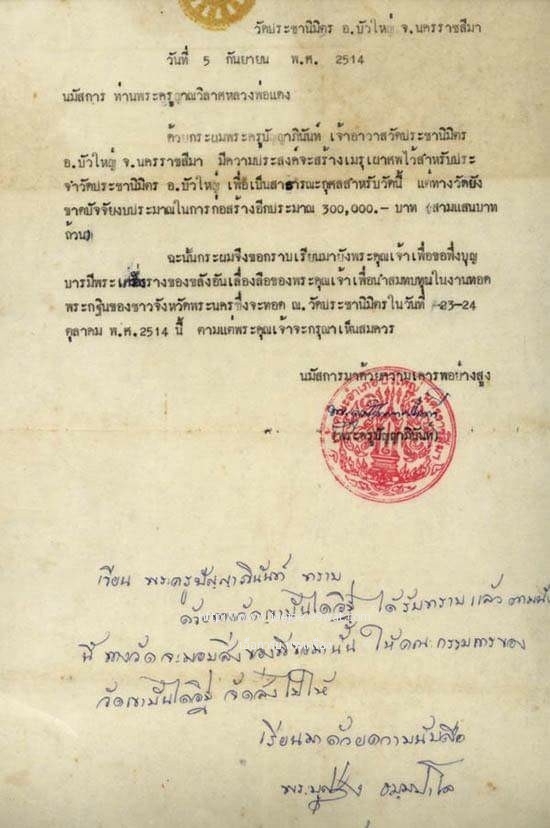 วัดประชานิมิตร อ.บัวใหญ่ จ.นครราชสีมา
วันที่ 5 กันยายน พ.ศ. 2514
นมัสการ ท่านพระครูญาณวิลาศหลวงพ่อแดง
ด้วยกระผมพระครูปัญญาภินันท์ เจ้าอาวาสวัดประชานิมิตร
อ.บัวใหญ่ จ.นครราชสีมา มีความประสงค์จะสร้างเมรุเผาศพไว้สำหรับประ
จำวัดประชานิมิตร อ.บัวใหญ่ เพื่อเป็นสาธารณะกุศลสำหรับวัดนี้ แต่ทางวัดยัง
ขาดปัจจัยงบประมาณในการกอสร้างอีกประมาณ 300,000.- บาท (สามแสนบาท
ถ้วน)
ฉะนั้นกระผมจึงขอกราบเรียนมายังพระคุณเจ้าเพื่อขอพึ่งบุญ
บารมีพระเครื่องรางของขลังอันเลื่องลือของพระคุณเจ้าเพื่อนำสมทบทุนในงานทอด
พระกฐินของชาวจังหวัดพระนครซึ่งจะทอด ณ.วัดประชานิมิตรในวันที่ 23-24
ตุลาคม พ.ศ.2514 นี้ ตามแต่พระคุณเจ้าจะกรุณาเห็นสมควร
นมัสการมาด้วยความเคารพอย่างสูง
(พระครูปัญญาภินันท์)
เรียน พระครูปัญญาภินันท์ ทราบ
ด้วยทางวัดเขาบันไดอิฐ ได้รับทราบแล้ว ตามนั้น
นี้ ทางวัดจะมอบสิ่งของที่ขอมานั้น ให้คณะกรรมการของ
วัดเขาบันไดอิฐ จัดส่งไปให้
เรียนมาด้วยความนับถือ
พระบุญส่ง ธมฺมปาโล